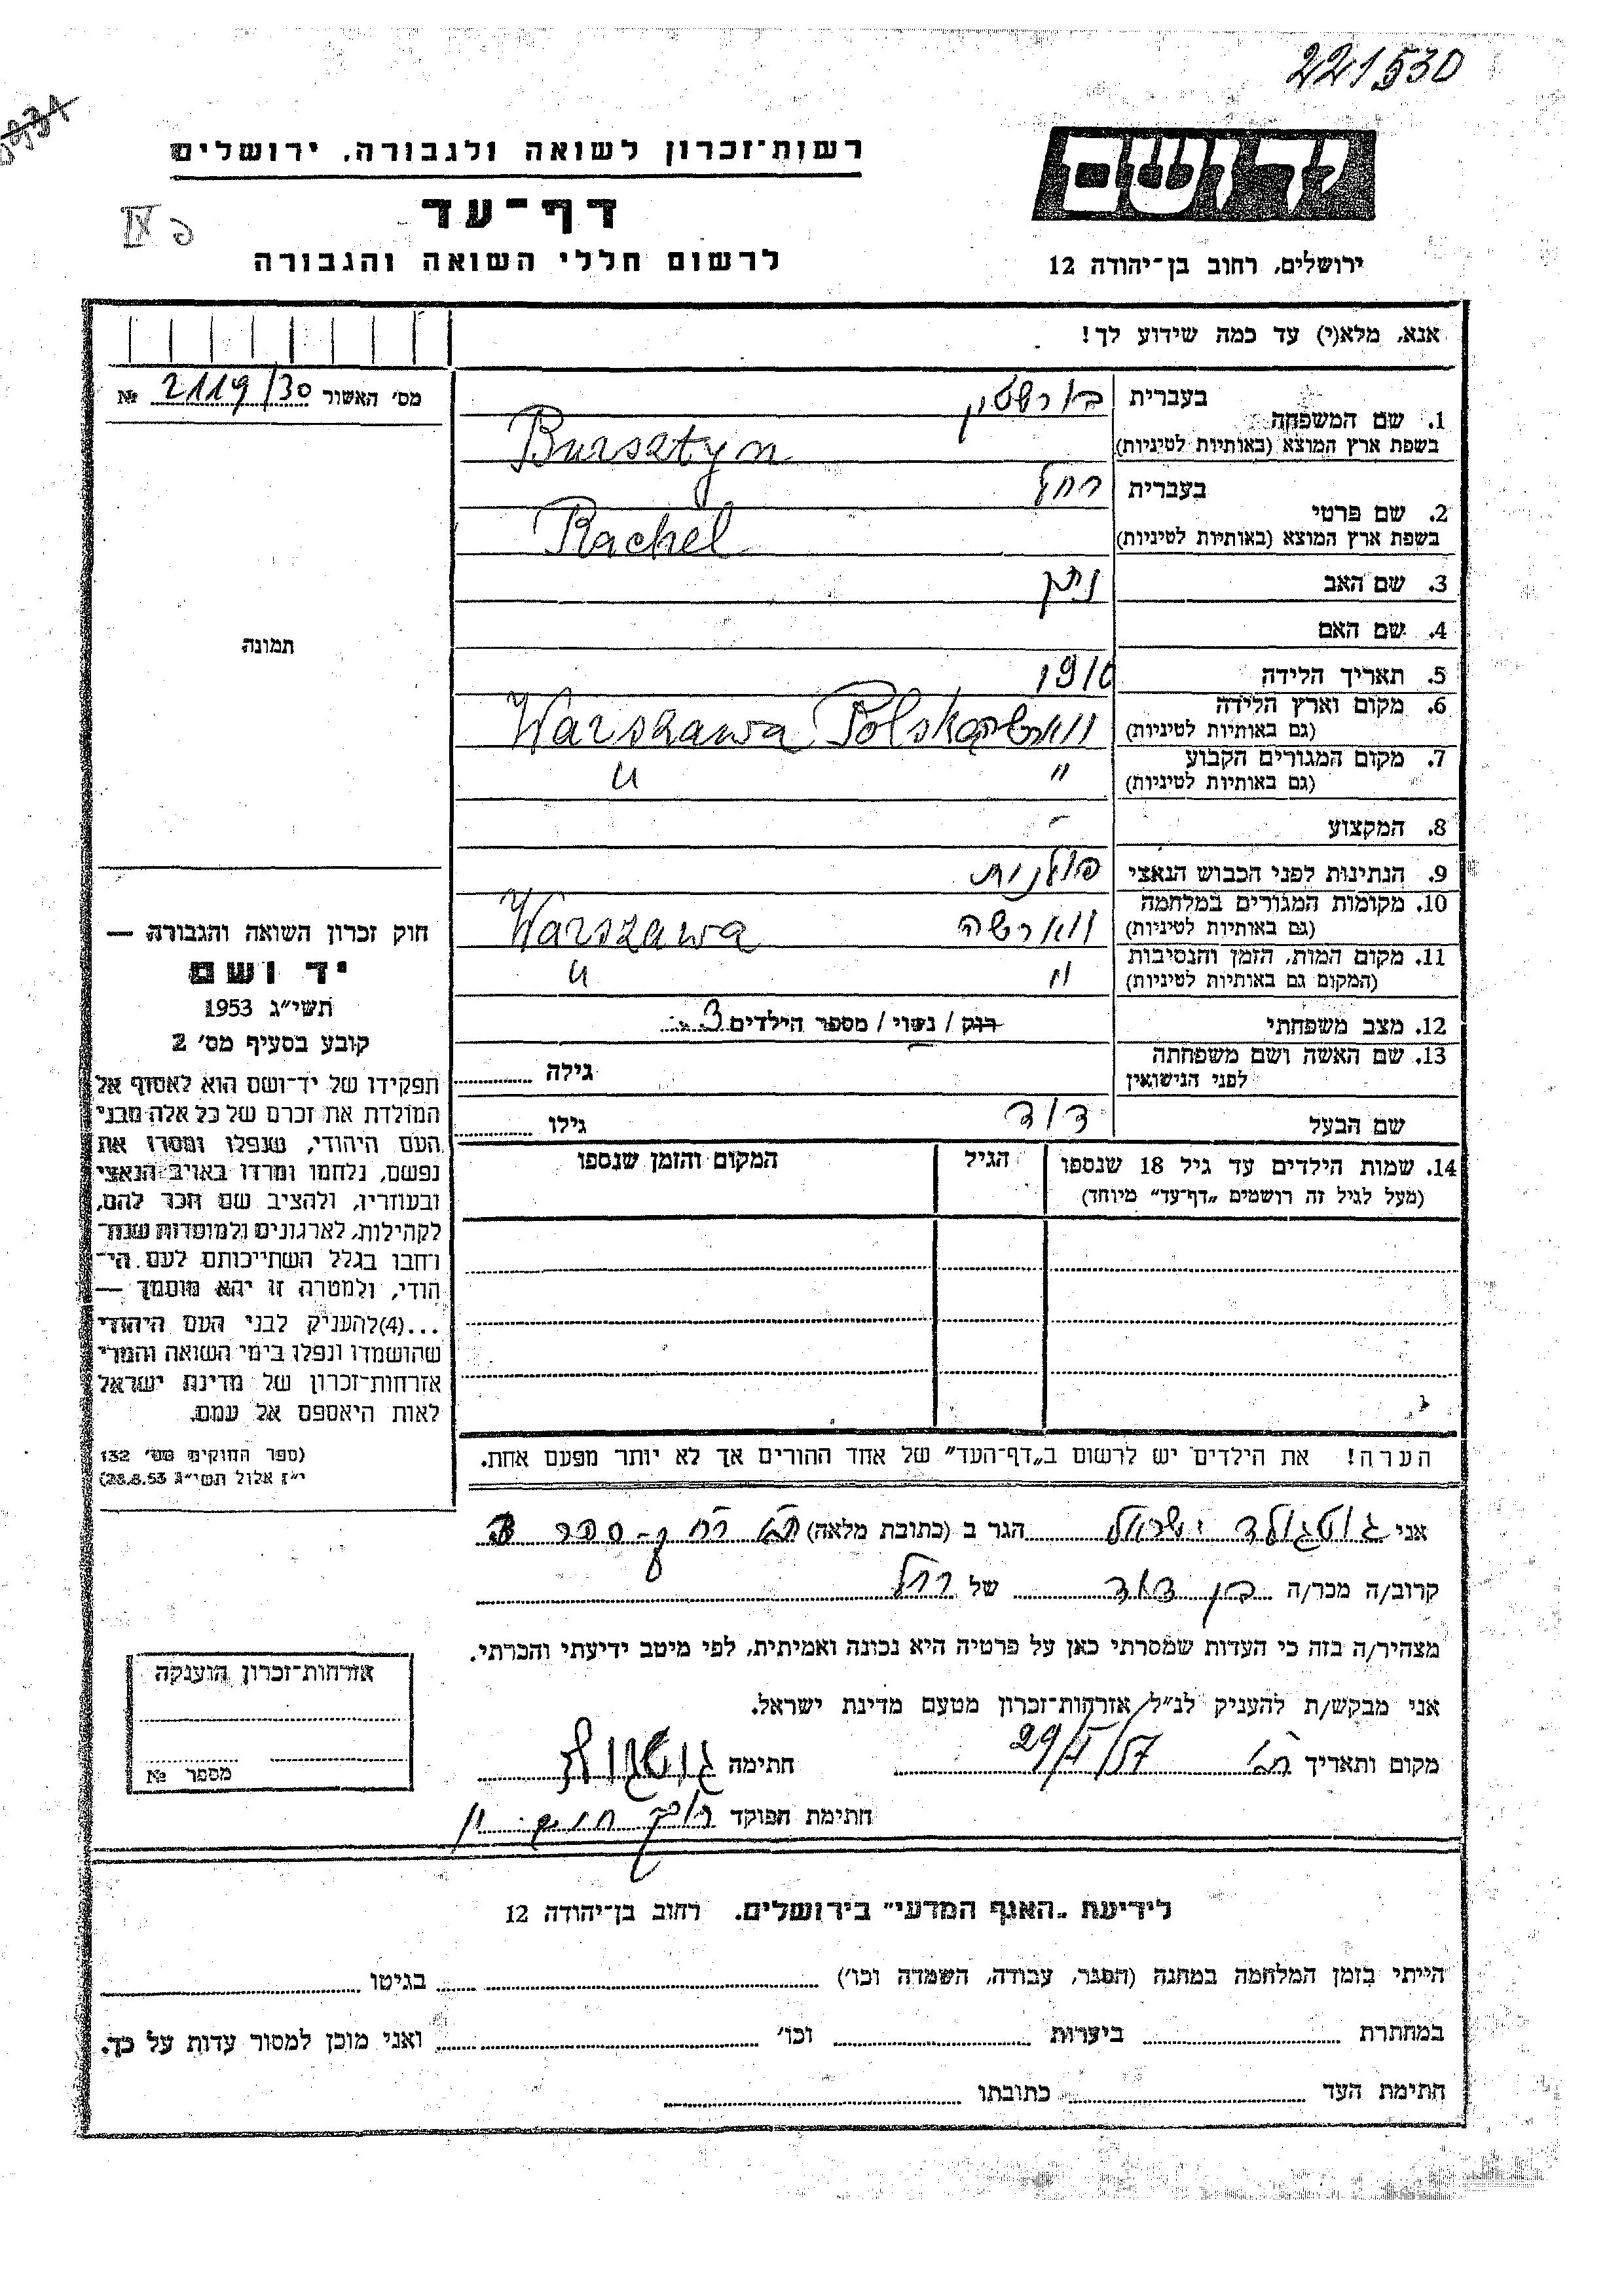 221530
יד ושם
ירושלים, רחוב בן־יהודה 12
רשות־זכרון לשואה ולגבורה, ירושלים
דף־עד
לרשום חללי השואה והגבורה
פ IX
אנא, מלא(י) עד כמה שידוע לך!
מס׳ האשור 2119/30 №
תמונה
1. שם המשפחה
בעברית בורשטין
בשפת ארץ המוצא (באותיות לטיניות) Bursztyn
2. שם פרטי
בעברית רחל
בשפת ארץ המוצא (באותיות לטיניות) Rachel
3. שם האב נתן
4. שם האם
5. תאריך הלידה 1910
6. מקום וארץ הלידה
(גם באותיות לטיניות) Warszawa Polska
7. מקום המגורים הקבוע
(גם באותיות לטיניות) " "
8. המקצוע -
9. הנתינות לפני הכבוש הנאצי פולנית
10. מקומות המגורים במלחמה
(גם באותיות לטיניות) ווארשה Warszawa
11. מקום המות, הזמן והנסיבות
(המקום גם באותיות לטיניות) " "
12. מצב משפחתי רווק / נשוי / מספר הילדים 3
13. שם האשה ושם משפחתה
לפני הנישואין גילה
שם הבעל דוד גילו
14. שמות הילדים עד גיל 18 שנספו
(מעל לגיל זה רושמים „דף־עד״ מיוחד)
הגיל
המקום והזמן שנספו
הערה! את הילדים יש לרשום ב„דף־העד״ של אחד ההורים אך לא יותר מפעם אחת.
חוק זכרון השואה והגבורה —
יד ושם
תשי״ג 1953
קובע בסעיף מס׳ 2
תפקידו של יד־ושם הוא לאסוף אל
המולדת את זכרם של כל אלה מבני
העם היהודי, שנפלו ומסרו את
נפשם, נלחמו ומרדו באויב הנאצי
ובעוזריו, ולהציב שם וזכר להם,
לקהילות, לארגונים ולמוסדות שנח־
רחבו בגלל השתייכותם לעם הי־
הודי, ולמטרה זו יהא מוסמך —
...(4)להעניק לבני העם היהודי
שהושמדו ונפלו בימי השואה והמרי
אזרחות־זכרון של מדינת ישראל
לאות היאספם אל עמם.
(ספר החוקים מס׳ 132
י״ז אלול תשי״ג 28.8.53)
אני גוטגולד ישראל הגר ב (כתובת מלאה)
קרוב/ה מכר/ה בן דוד של רחל
מצהיר/ה בזה כי העדות שמסרתי כאן על פרטיה היא נכונה ואמיתית, לפי מיטב ידיעתי והכרתי.
אני מבקש/ת להעניק לנ״ל אזרחות־זכרון מטעם מדינת ישראל.
מקום ותאריך ת״א חתימה גוטגולד
חתימת הפוקד
אזרחות־זכרון הוענקה
מספר №
לידיעת „האגף המדעי״ בירושלים, רחוב בן־יהודה 12
הייתי בזמן המלחמה במחנה (הסגר, עבודה, השמדה וכו׳) בגיטו
במחתרת ביערות וכו׳ ואני מוכן למסור עדות על כך.
חתימת העד כתובתו